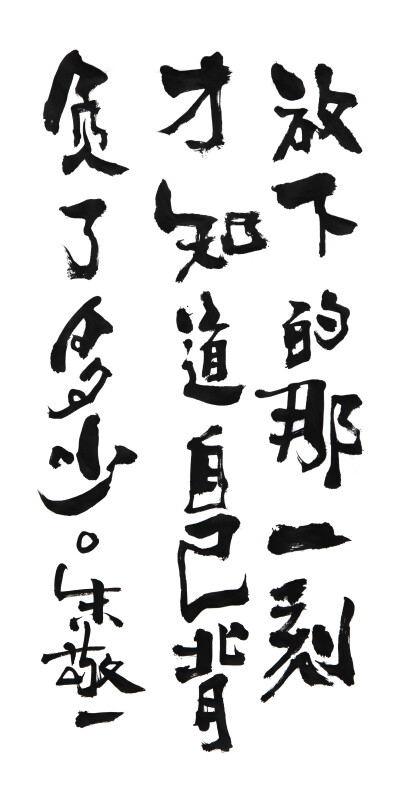 放下的那一刻
才知道自己背
负了多少。朱敬一